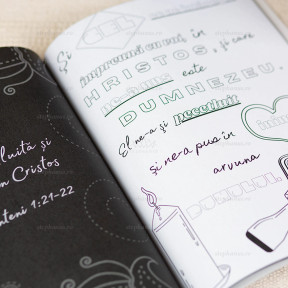 luită și
n Cristos
nteni 1:21-22
CEL
Și
împreună cu voi, în
HRISTOS, și care
este
DUMNEZEU.
El ne-a și pecetluit
și ne-a pus în
arvuna
inim
DUHULUI.